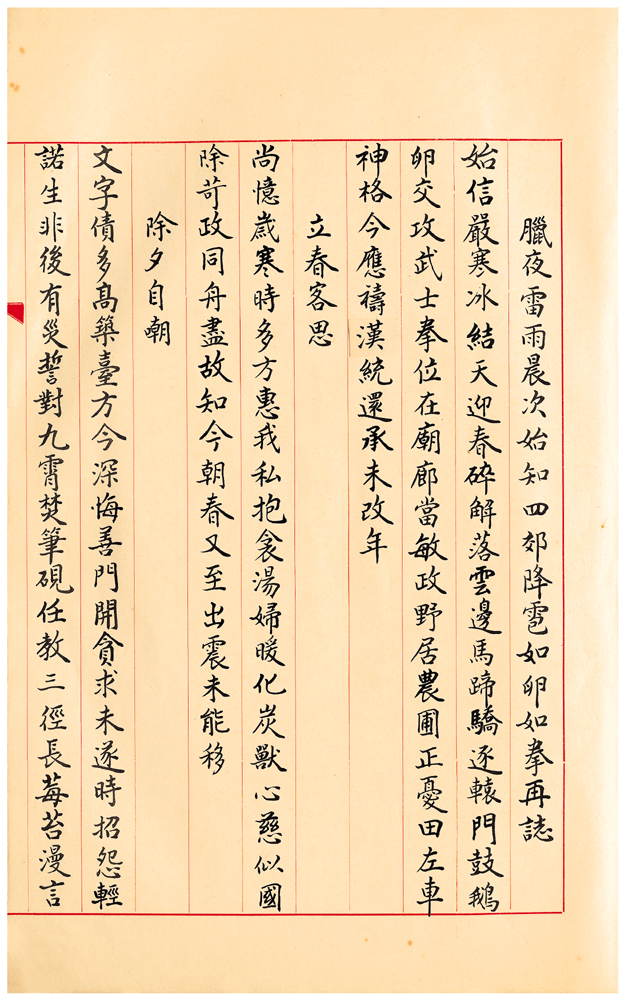 臘夜雷雨晨次始知四郊降雹如卵如拳再誌
始信嚴寒冰結天迎春碎解落雲邊馬蹄驕逐轅門鼓鵝
卵交攻武士拳位在廟廊當敏政野居農圃正憂田左車
神格今應禱漢統還承未改年
立春客思
尚憶歲寒時多方惠我私抱衾湯婦暖化炭獸心慈似國
除苛政同舟盡故知今朝春又至出震未能移
除夕自嘲
文字債多高築臺方今深悔善門開貪求未遂時招怨輕
諾生非後有災誓對九霄焚筆硯任教三徑長莓苔漫言